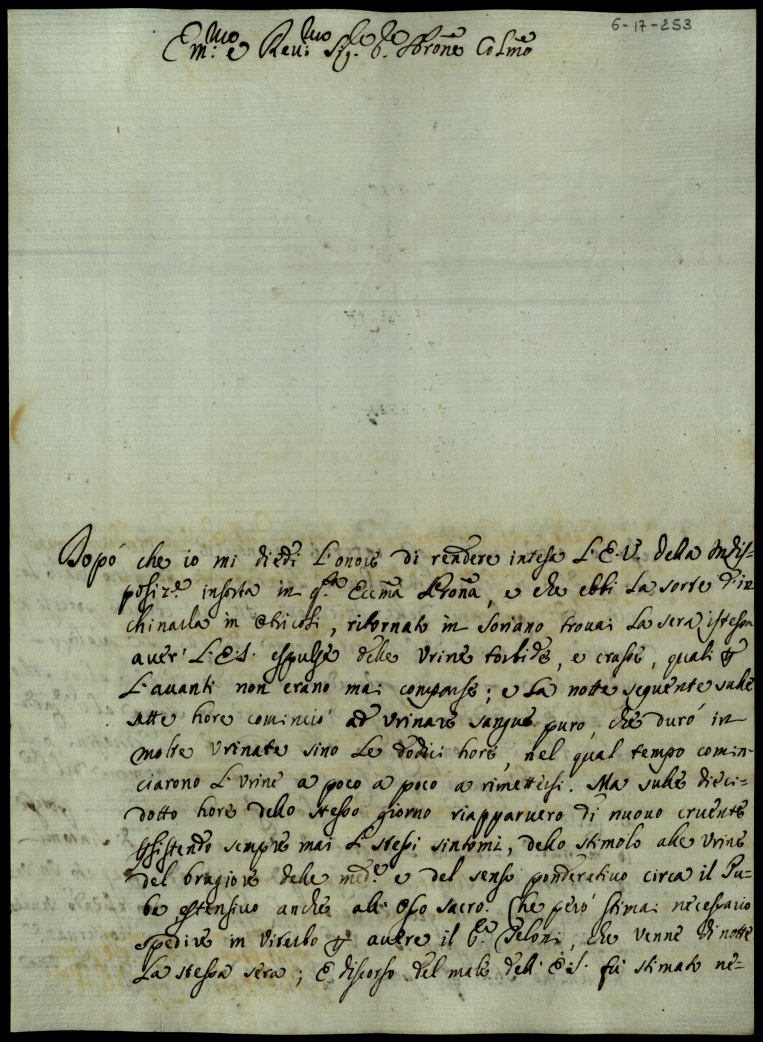 6-17-253
Em.mo e Rev.mo Sig.re e Prōne Colmō
Dopò che io mi diedi L'onore di rendere intesa L'E.V. della Indis-
posiz.e insorta in q.sta Eccma Prōna, e che ebbi La sorte d'in
chinarla in , ritornato in Soriano trovai La sera istessa
aver' L'E.S. espulse delle Vrine torbide, e crasse, quali p
L'avanti non erano mai comparse; e La notte seguente sulle
sette hore cominciò ad Vrinare sangue puro, che durò in
molte Vrinate sino Le dodici hore, nel qual tempo comin-
ciarono L'Vrine a poco a poco a rimettersi. Ma sulle dieci-
dotto hore dello stesso giorno riapparuero di nuouo cruente
pſistendo sempre mai L'istessi sintomi, dello stimolo alle Vrine
del brugiore delle med.e e del senso ponderatiuo circa il Pu-
be extensiuo anche all'Osso sacro. Che però stimai necessario
spedire in Viterbo p auere il S.r Peloni, che venne di notte
La stessa sera; E discorso del male dell'E.S. fù stimato ne-